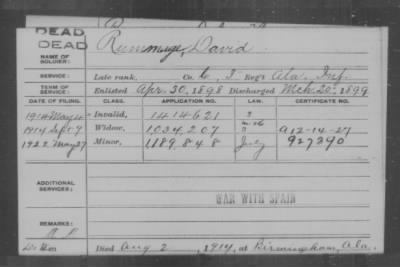 DEAD
DEAD
NAME OF SOLDIER: Rummage, David
SERVICE: Late rank, Co. Reg't Ala. Inf.
TERM OF SERVICE: Enlisted Apr. 30, 1898 Discharged Mch. 20, 1899
DATE OF FILING. CLASS. APPLICATION NO. LAW. CERTIFICATE NO.
1914 May Invalid, 1414621
1914 Sept. 9 Widow, 1034,207 A12-14-27
1922 May 27 Minor, 1189,848 July 927390
ADDITIONAL SERVICES:
WAR WITH SPAIN
REMARKS:
Died Aug 2, 1914, at Birmingham, Ala.